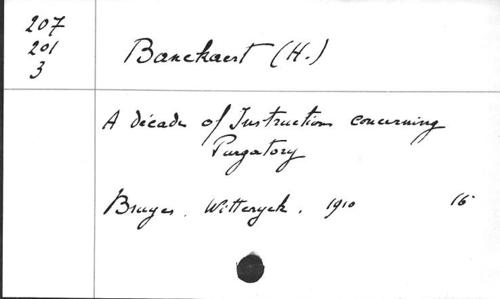 207
201
3
Banckaert (H.)
A décade of Instructions concerning
Purgatory
Bruges. Witteryck. 1910 16°